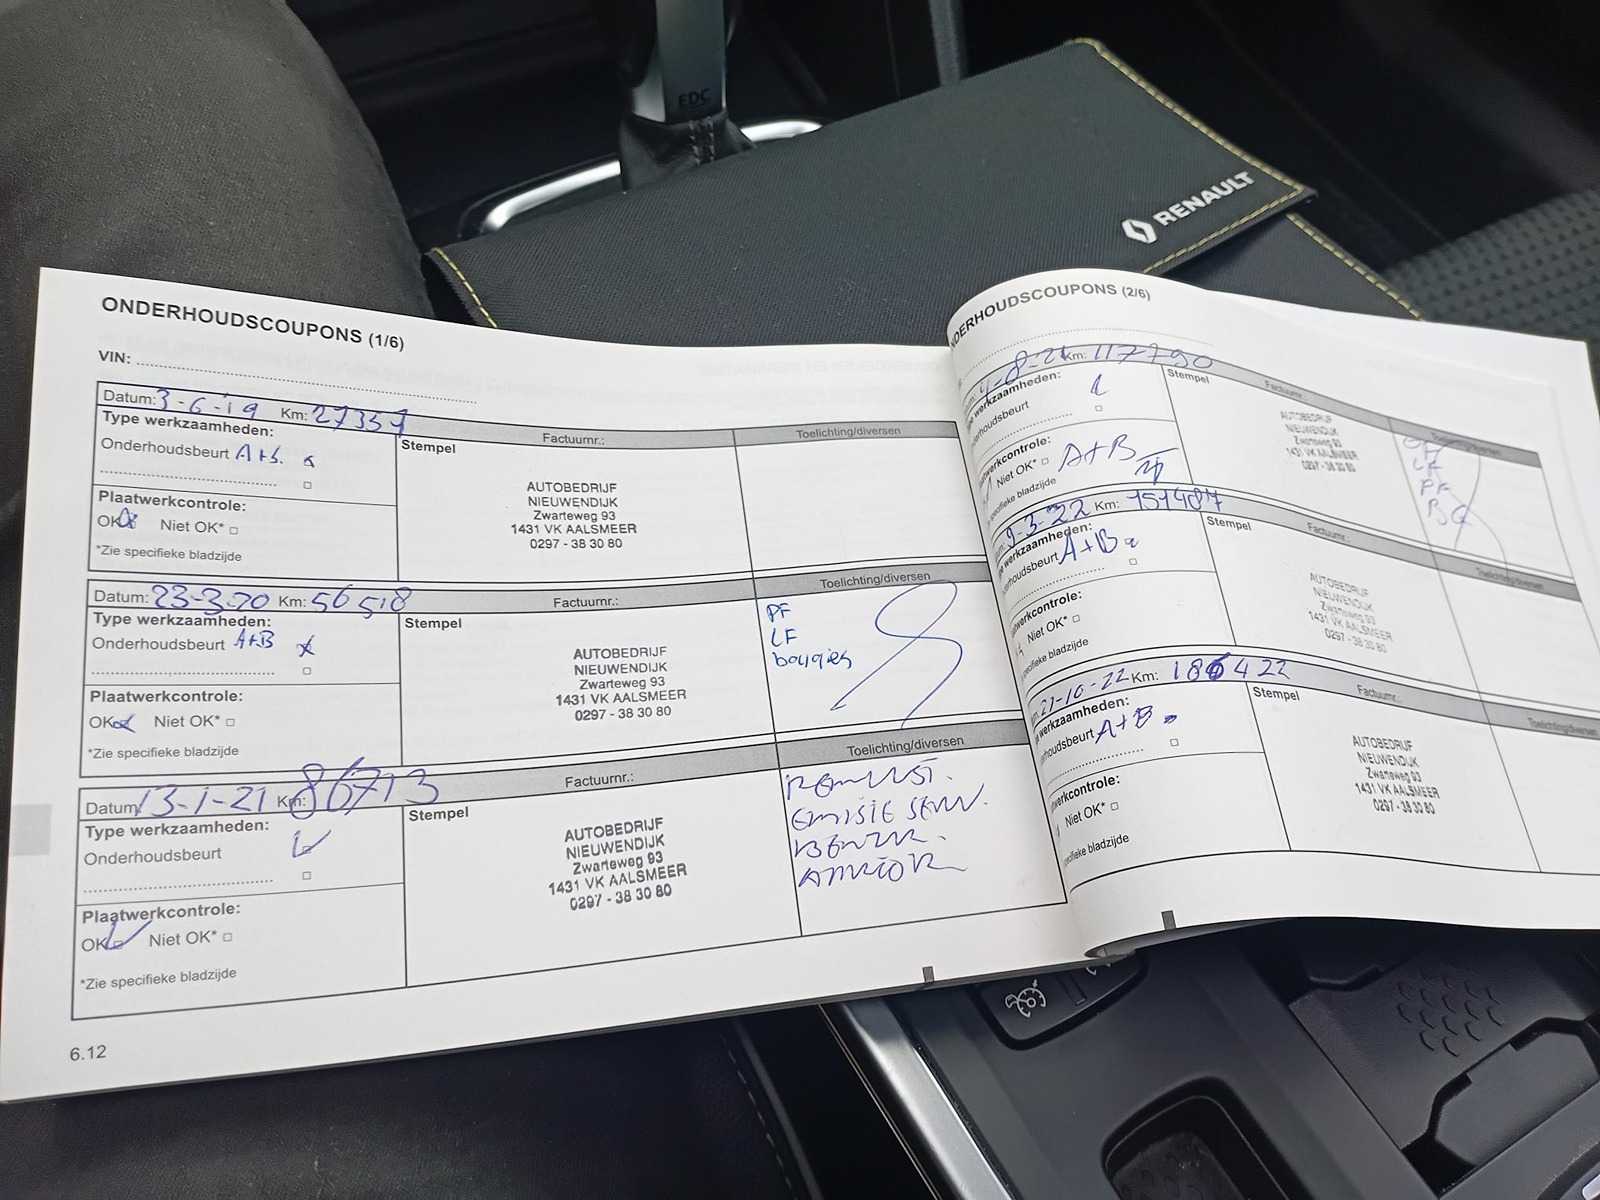 EDC
RENAULT
ONDERHOUDSCOUPONS (1/6)
VIN:
Datum: 3-6-19 Km: 27357
Factuurnr.:
Toelichting/diversen
Type werkzaamheden:
Stempel
Onderhoudsbeurt
Plaatwerkcontrole:
OK Niet OK*
*Zie specifieke bladzijde
AUTOBEDRIJF
NIEUWENDIJK
Zwarteweg 93
1431 VK AALSMEER
0297 - 38 30 80
Datum: 23-3-20 Km: 56518
Factuurnr.:
Toelichting/diversen
Type werkzaamheden:
Stempel
Onderhoudsbeurt A+B
Plaatwerkcontrole:
OK Niet OK*
*Zie specifieke bladzijde
AUTOBEDRIJF
NIEUWENDIJK
Zwarteweg 93
1431 VK AALSMEER
0297 - 38 30 80
PF
LF
bougies
Datum 13-1-21 Km: 86713
Factuurnr.:
Toelichting/diversen
Type werkzaamheden:
Stempel
Onderhoudsbeurt
Plaatwerkcontrole:
OK Niet OK*
*Zie specifieke bladzijde
AUTOBEDRIJF
NIEUWENDIJK
Zwarteweg 93
1431 VK AALSMEER
0297 - 38 30 80
6.12
NDERHOUDSCOUPONS (2/6)
4-8-21 Km: 117790
Factuurnr.:
Toelichting/diversen
ype werkzaamheden:
Stempel
nderhoudsbeurt
controle:
Niet OK* A+B
specifieke bladzijde
AUTOBEDRIJF
NIEUWENDIJK
Zwarteweg 93
1431 VK AALSMEER
0297 - 38 30 80
LF
PF
9-3-22 Km: 151487
Factuurnr.:
Toelichting/diversen
werkzaamheden:
Stempel
houdsbeurt A+B
werkcontrole:
Niet OK*
specifieke bladzijde
AUTOBEDRIJF
NIEUWENDIJK
Zwarteweg 93
1431 VK AALSMEER
0297 - 38 30 80
21-10-22 Km: 186422
Factuurnr.:
Toelichting/diversen
werkzaamheden:
Stempel
erhoudsbeurt A+B
werkcontrole:
Niet OK*
specifieke bladzijde
AUTOBEDRIJF
NIEUWENDIJK
Zwarteweg 93
1431 VK AALSMEER
0297 - 38 30 80